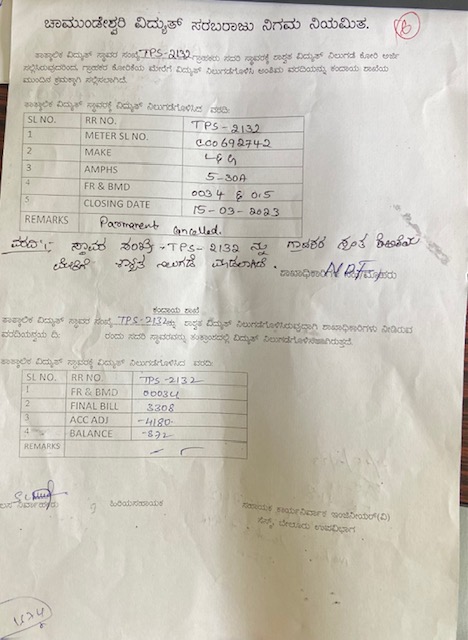 ಚಾಮುಂಡೇಶ್ವರಿ ವಿದ್ಯುತ್ ಸರಬರಾಜು ನಿಗಮ ನಿಯಮಿತ.
ತಾತ್ಕಾಲಿಕ ವಿದ್ಯುತ್ ಸ್ಥಾವರ ಸಂಖ್ಯೆ TPS-2132 ಗ್ರಾಹಕರು ಸದರಿ ಸ್ಥಾವರಕ್ಕೆ ಶಾಶ್ವತ ವಿದ್ಯುತ್ ನಿಲುಗಡೆ ಕೋರಿ ಅರ್ಜಿ
ಸಲ್ಲಿಸಿರುವುದರಿಂದ, ಗ್ರಾಹಕರ ಕೋರಿಕೆಯ ಮೇರೆಗೆ ವಿದ್ಯುತ್ ನಿಲುಗಡೆಗೊಳಿಸಿ ಅಂತಿಮ ವರದಿಯನ್ನು ಕಂದಾಯ ಶಾಖೆಯ
ಮುಂದಿನ ಕ್ರಮಕ್ಕಾಗಿ ಸಲ್ಲಿಸಲಾಗಿದೆ.
ತಾತ್ಕಾಲಿಕ ವಿದ್ಯುತ್ ಸ್ಥಾವರಕ್ಕೆ ವಿದ್ಯುತ್ ನಿಲುಗಡೆಗೊಳಿಸಿದ ವರದಿ:
SL NO. RR NO. TPS-2132
1 METER SL NO. CC0692742
2 MAKE L&G
3 AMPHS 5-30A
4 FR & BMD 0034 & 0.5
5 CLOSING DATE 15-03-2023
REMARKS Permanent Cancelled.
ವರದಿ: ಸ್ಥಾವರ ಸಂಖ್ಯೆ TPS-2132 ನ್ನು
ಮೇರೆಗೆ ಶಾಶ್ವತ ನಿಲುಗಡೆ ಮಾಡಲಾಗಿದೆ.
ಶಾಖಾಧಿಕಾರಿಗಳ
ಕಂದಾಯ ಶಾಖೆ
ತಾತ್ಕಾಲಿಕ ವಿದ್ಯುತ್ ಸ್ಥಾವರ ಸಂಖ್ಯೆ TPS-2132ಕ್ಕೆ ಶಾಶ್ವತ ವಿದ್ಯುತ್ ನಿಲುಗಡೆಗೊಳಿಸಿರುವುದಾಗಿ ಶಾಖಾಧಿಕಾರಿಗಳು ನೀಡಿರುವ
ವರದಿಯನ್ವಯ ದಿ: ರಂದು ಸದರಿ ಸ್ಥಾವರವನ್ನು ತಂತ್ರಾಂಶದಲ್ಲಿ ವಿದ್ಯುತ್ ನಿಲುಗಡೆಗೊಳಿಸಲಾಗಿರುತ್ತದೆ.
ತಾತ್ಕಾಲಿಕ ವಿದ್ಯುತ್ ಸ್ಥಾವರಕ್ಕೆ ವಿದ್ಯುತ್ ನಿಲುಗಡೆಗೊಳಿಸಿದ ವರದಿ:
SL NO. RR NO. TPS-2132
1 FR & BMD 00034
2 FINAL BILL 3308
3 ACC ADJ -4180
4 BALANCE -872
REMARKS
ಹಿರಿಯಸಹಾಯಕ
ಸಹಾಯಕ ಕಾರ್ಯನಿರ್ವಾಹಕ ಇಂಜಿನೀಯರ್(ವಿ)
ಸೆಸ್ಕ್, ಬೇಲೂರು ಉಪವಿಭಾಗ